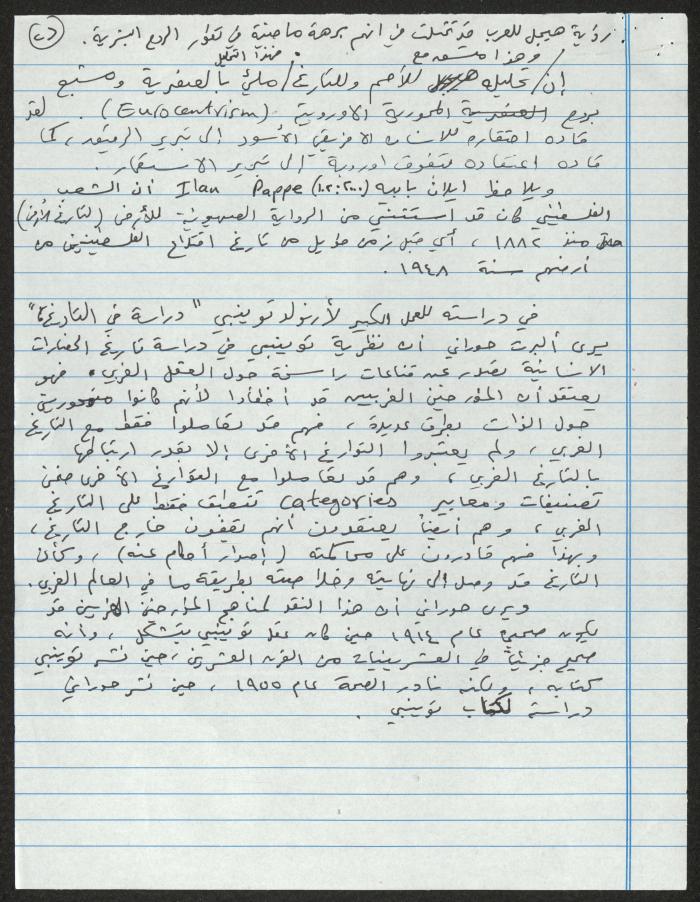 (٢)
رؤية هيجل للعرب قد تمثلت في انهم برهة ماضية في تطور الروح البشرية.
وهذا متسق مع . فهذا التحليل
إن/تحليله للأمم وللتاريخ/ملئ بالعنصرية ومشبع
بروح المحورية الاوروبية (Eurocentrism). لقد
قاده احتقاره للانسان الافريقي الأسود إلى تبرير الرقيق، كما
قاده اعتقاده بتفوق اوروبة إلى تبرير الاستعمار.
ويلاحظ ايلان بابيه Ilan Pappe (٢٠٠٠:١٠٢) أن الشعب
الفلسطيني كان قد أستثني من الرواية الصهيونية للأرض (لتاريخ الأرض)
منذ ١٨٨٢، أي قبل زمن طويل من تاريخ اقتلاع الفلسطينيين من
أرضهم سنة ١٩٤٨.
في دراسته للعمل الكبير لأرنولد توينبي "دراسة في التاريخ"
يرى ألبرت حوراني أن نظرية توينبي في دراسة تاريخ الحضارات
الانسانية تصدر عن قناعات راسخة حول العقل الغربي. فهو
يعتقد أن المؤرخين الغربيين قد أخطأوا لأنهم كانوا متمحورين
حول الذات بطرق عديدة، فهم قد تعاملوا فقط مع التاريخ
الغربي، ولم يعتبروا التواريخ الأخرى إلا بقدر ارتباطها
بالتاريخ الغربي، وهم قد تعاملوا مع التواريخ الأخرى ضمن
تصنيفات ومعايير categories تنطبق فقط على التاريخ
الغربي، وهم أيضاً يعتقدون أنهم يقفون خارج التاريخ،
وبهذا فهم قادرون على محاكمته (إصدار أحكام عنه)، وكأن
التاريخ قد وصل إلى نهايته وخلاصته بطريقة ما في العالم الغربي.
ويرى حوراني أن هذا النقد لمناهج المؤرخين الغربيين قد
يكون صحيحاً عام ١٩١٤ حين كان عقل توينبي يتشكل، وأنه
صحيح جزئياً في العشرينيات من القرن العشرين، حين نشر توينبي
كتابه، ولكنه نادر الصحة عام ١٩٥٥، حين نشر حوراني
دراسته لكتاب توينبي.